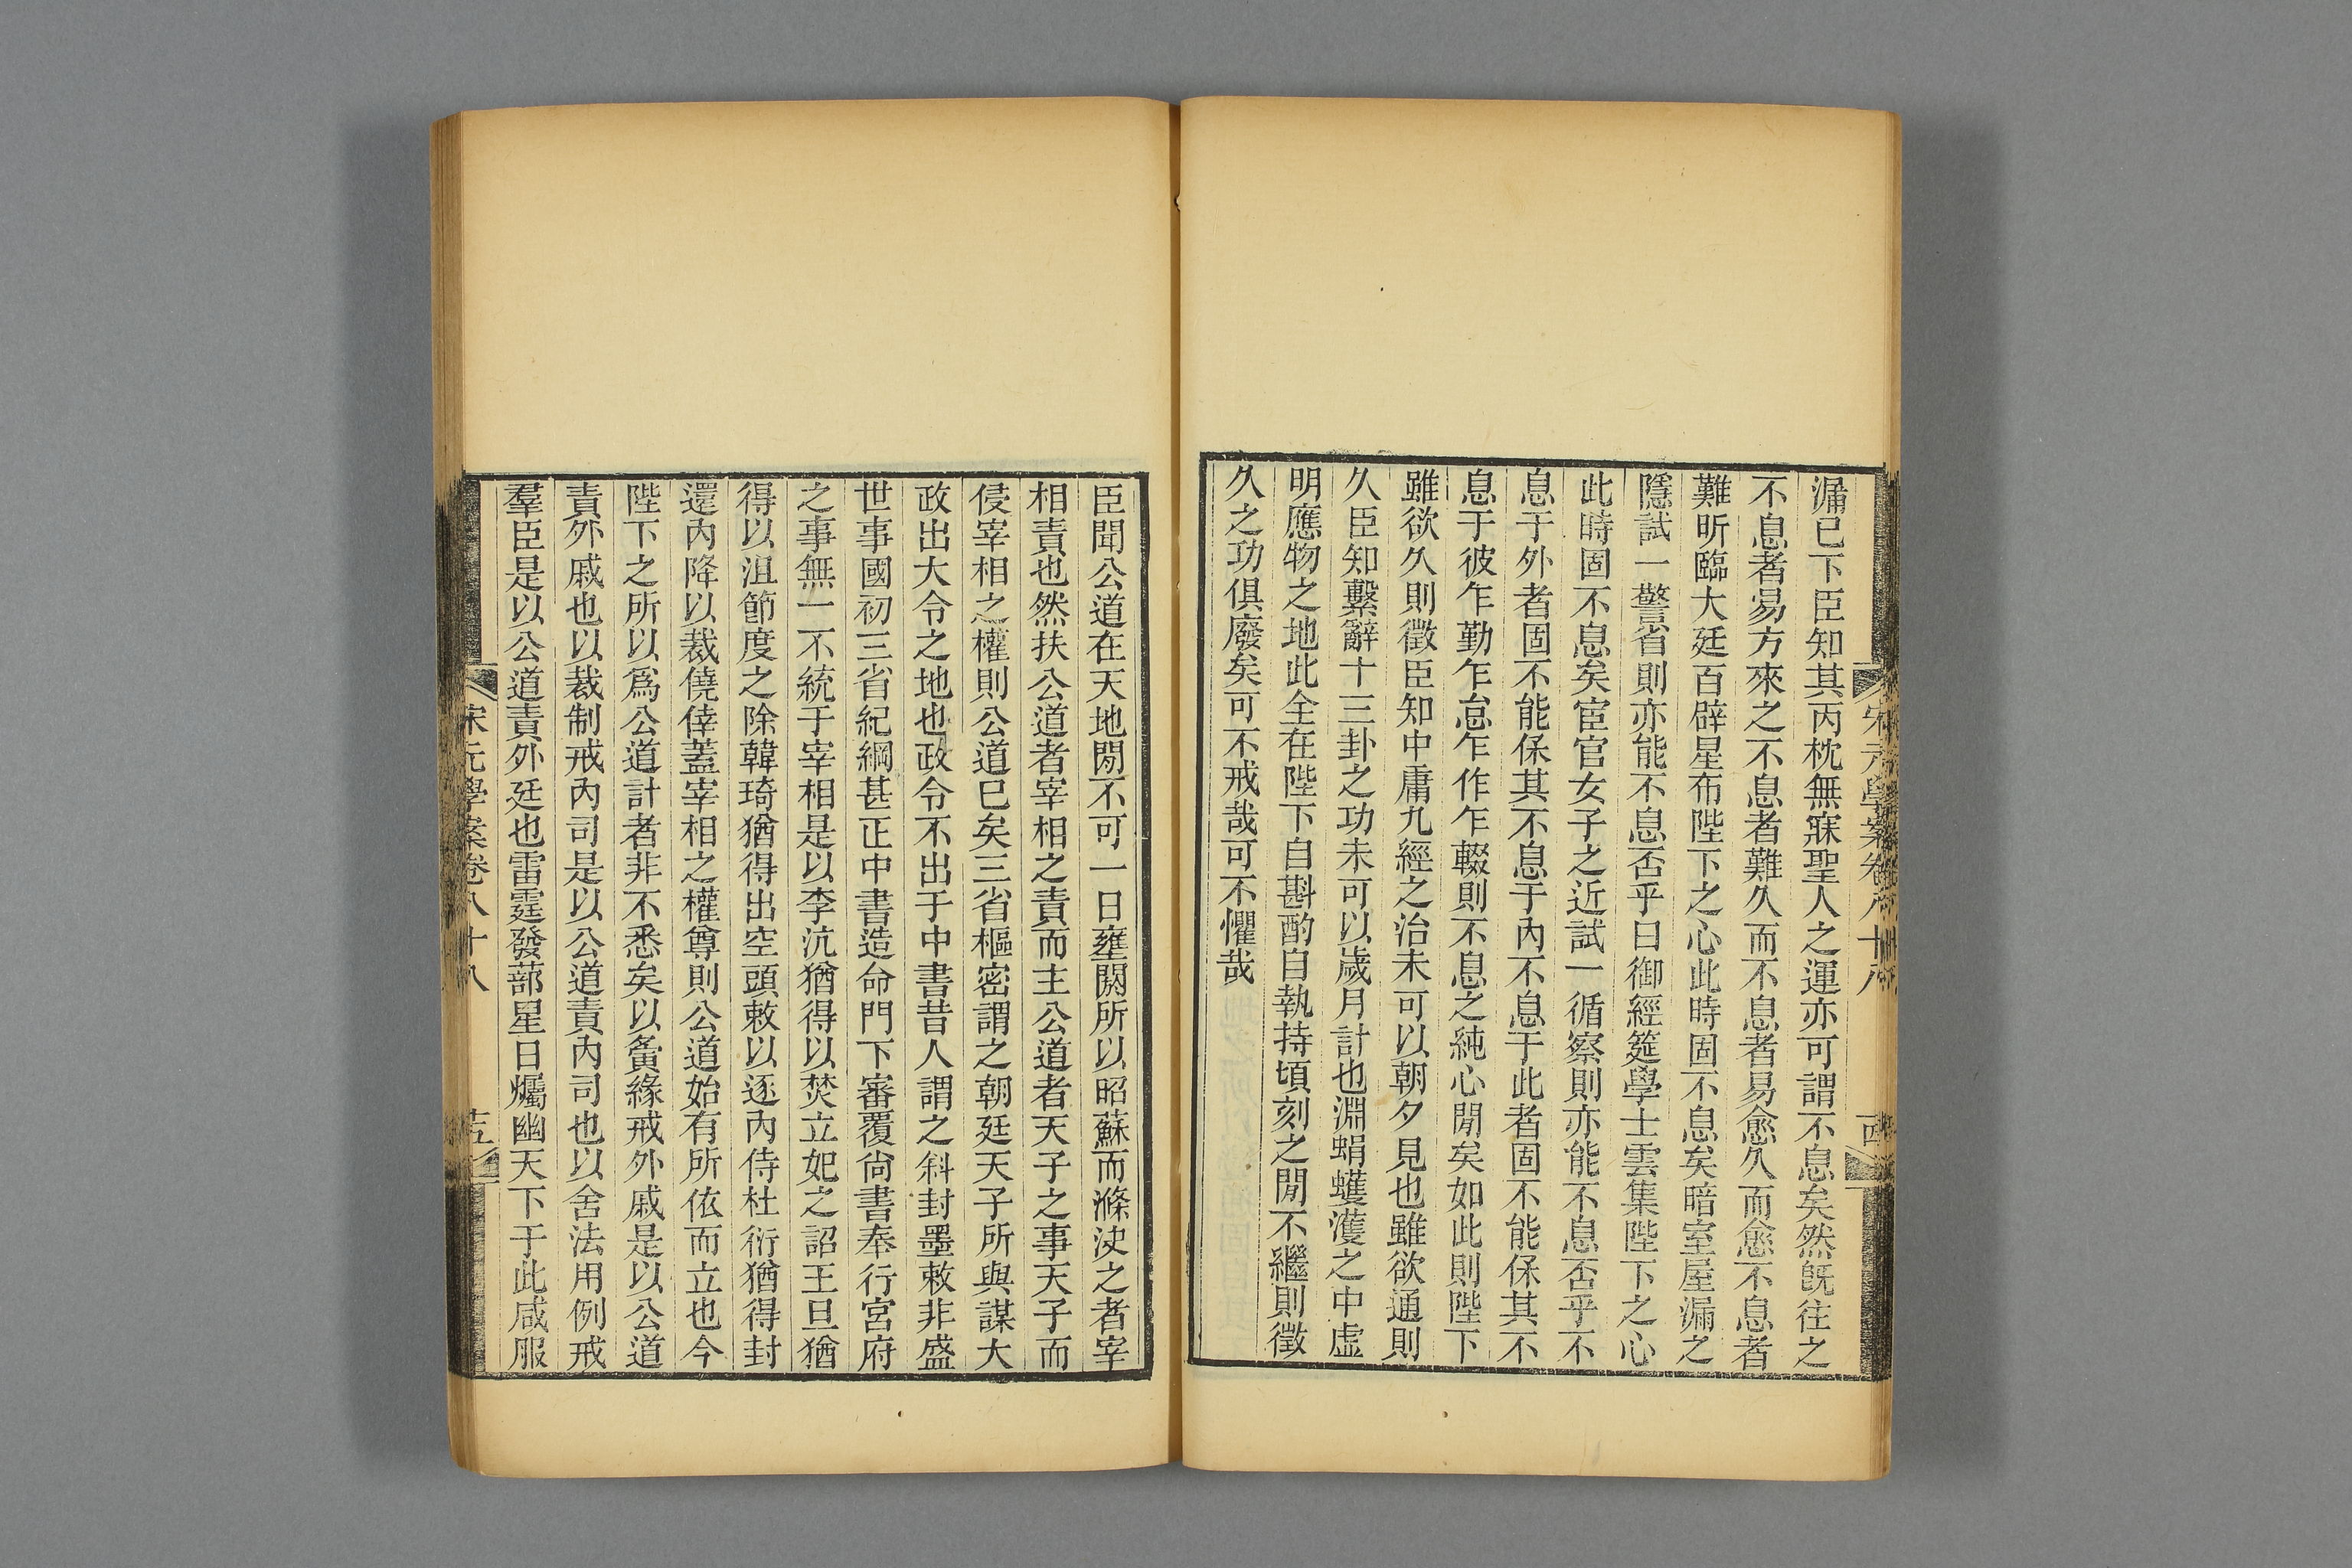 宋元學案卷八十八
漏已下臣知其丙枕無寐聖人之運亦可謂不息矣然旣往之
不息者易方來之不息者難久而不息者易愈久而愈不息者
難昕臨大廷百辟星布陛下之心此時固不息矣暗室屋漏之
隱試一警省則亦能不息否乎日御經筵學士雲集陛下之心
此時固不息矣宦官女子之近試一循察則亦能不息否乎不
息于外者固不能保其不息于內不息于此者固不能保其不
息于彼乍勤乍怠乍作乍輟則不息之純心閒矣如此則陛下
雖欲久則徵臣知中庸九經之治未可以朝夕見也雖欲通則
久臣知繫辭十三卦之功未可以歲月計也淵蜎蠖濩之中虛
明應物之地此全在陛下自斟酌自執持頃刻之閒不繼則徵
久之功俱廢矣可不戒哉可不懼哉
臣聞公道在天地閒不可一日壅閼所以昭蘇而滌決之者宰
相責也然扶公道者宰相之責而主公道者天子之事天子而
侵宰相之權則公道已矣三省樞密謂之朝廷天子所與謀大
政出大令之地也政令不出于中書昔人謂之斜封墨敕非盛
世事國初三省紀綱甚正中書造命門下審覆尙書奉行宮府
之事無一不統于宰相是以李沆猶得以焚立妃之詔王旦猶
得以沮節度之除韓琦猶得出空頭敕以逐內侍杜衍猶得封
還內降以裁僥倖蓋宰相之權尊則公道始有所依而立也今
陛下之所以爲公道計者非不悉矣以夤緣戒外戚是以公道
責外戚也以裁制戒內司是以公道責內司也以舍法用例戒
羣臣是以公道責外廷也雷霆發蔀星日爥幽天下于此咸服
宋元學案卷八十八